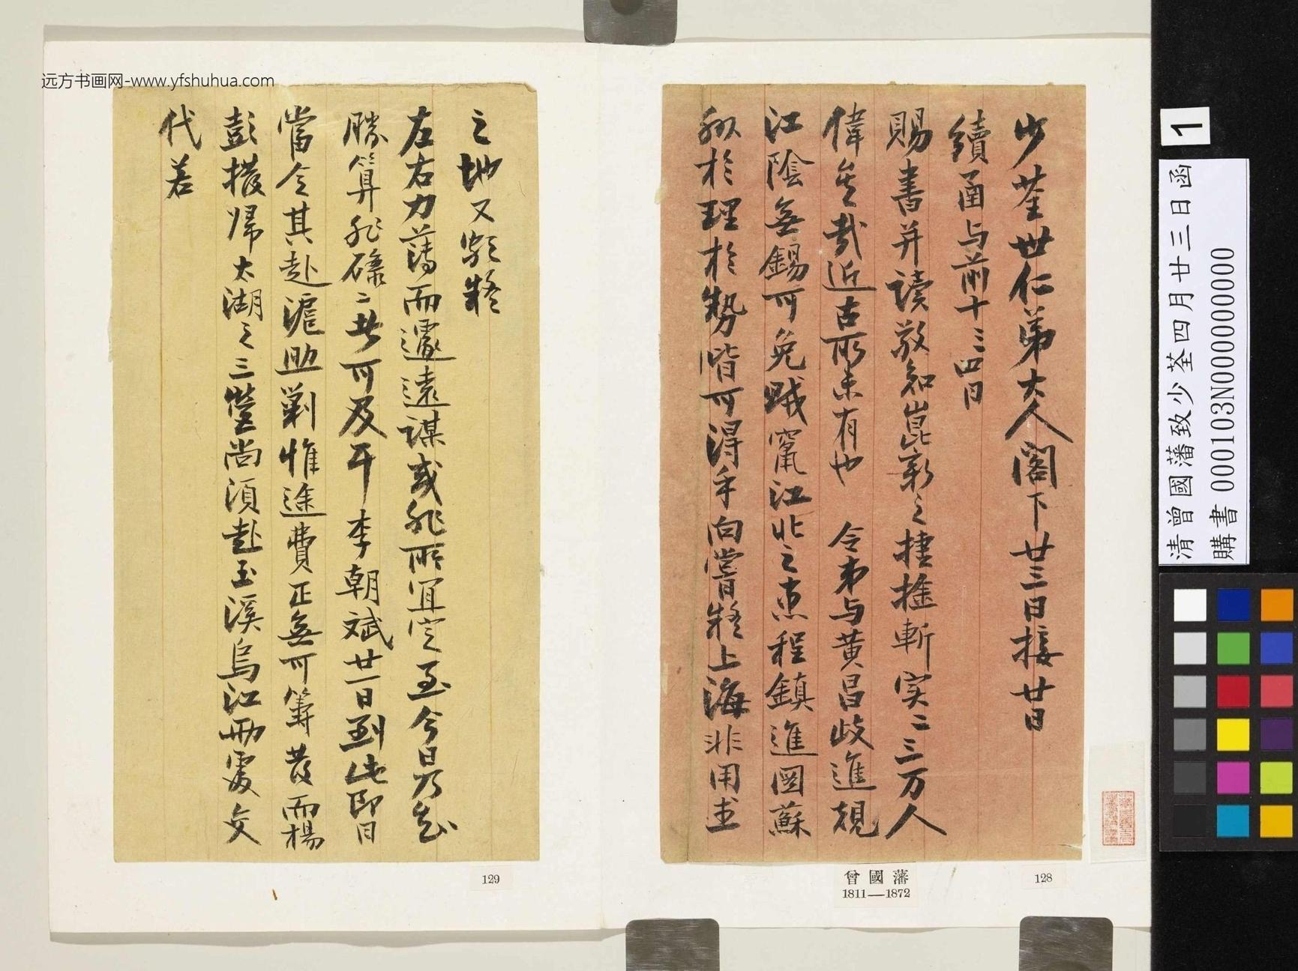 远方书画网-www.yfshuhua.com
少荃世仁弟大人閣下廿三日接廿日
續函与前十三四日
賜書并讀敬知崑新之捷擒斬實二三万人
偉矣哉近古所未有也 令弟与黃昌歧進規
江陰無錫可免賊竄江北之患程鎮進圖蘇
於理於勢皆可得手向嘗疑上海非用武
之地又疑
左右力薄而遽遠謀或非所宜定至今日乃知
勝算非碌二者可及耳 李朝斌廿一日到此即日
當令其赴滬助剿惟途費正無可籌發而楊
彭撥歸太湖之三營尚須赴玉溪烏江兩處交
代若
129
曾國藩
1811—1872
128
1
清曾國藩致少荃四月廿三日函
購書 000103N000000000